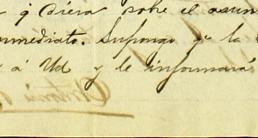 q diera sobre el asun
nmediato. Supongo que la
a Ud y le informará